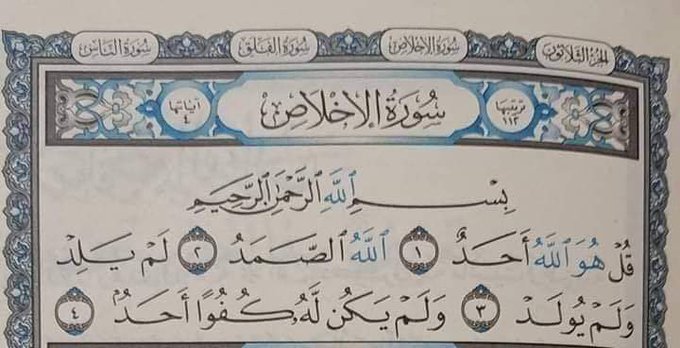 الجزء الثلاثون سورة الإخلاص سورة الفلق سورة الناس
ترتيبها ١١٢ سُورَةُ الإِخْلَاصِ آياتها ٤
بِسْمِ ٱللَّهِ ٱلرَّحْمَٰنِ ٱلرَّحِيمِ
قُلْ هُوَ ٱللَّهُ أَحَدٌ ١ ٱللَّهُ ٱلصَّمَدُ ٢ لَمْ يَلِدْ
وَلَمْ يُولَدْ ٣ وَلَمْ يَكُن لَّهُۥ كُفُوًا أَحَدُۢ ٤